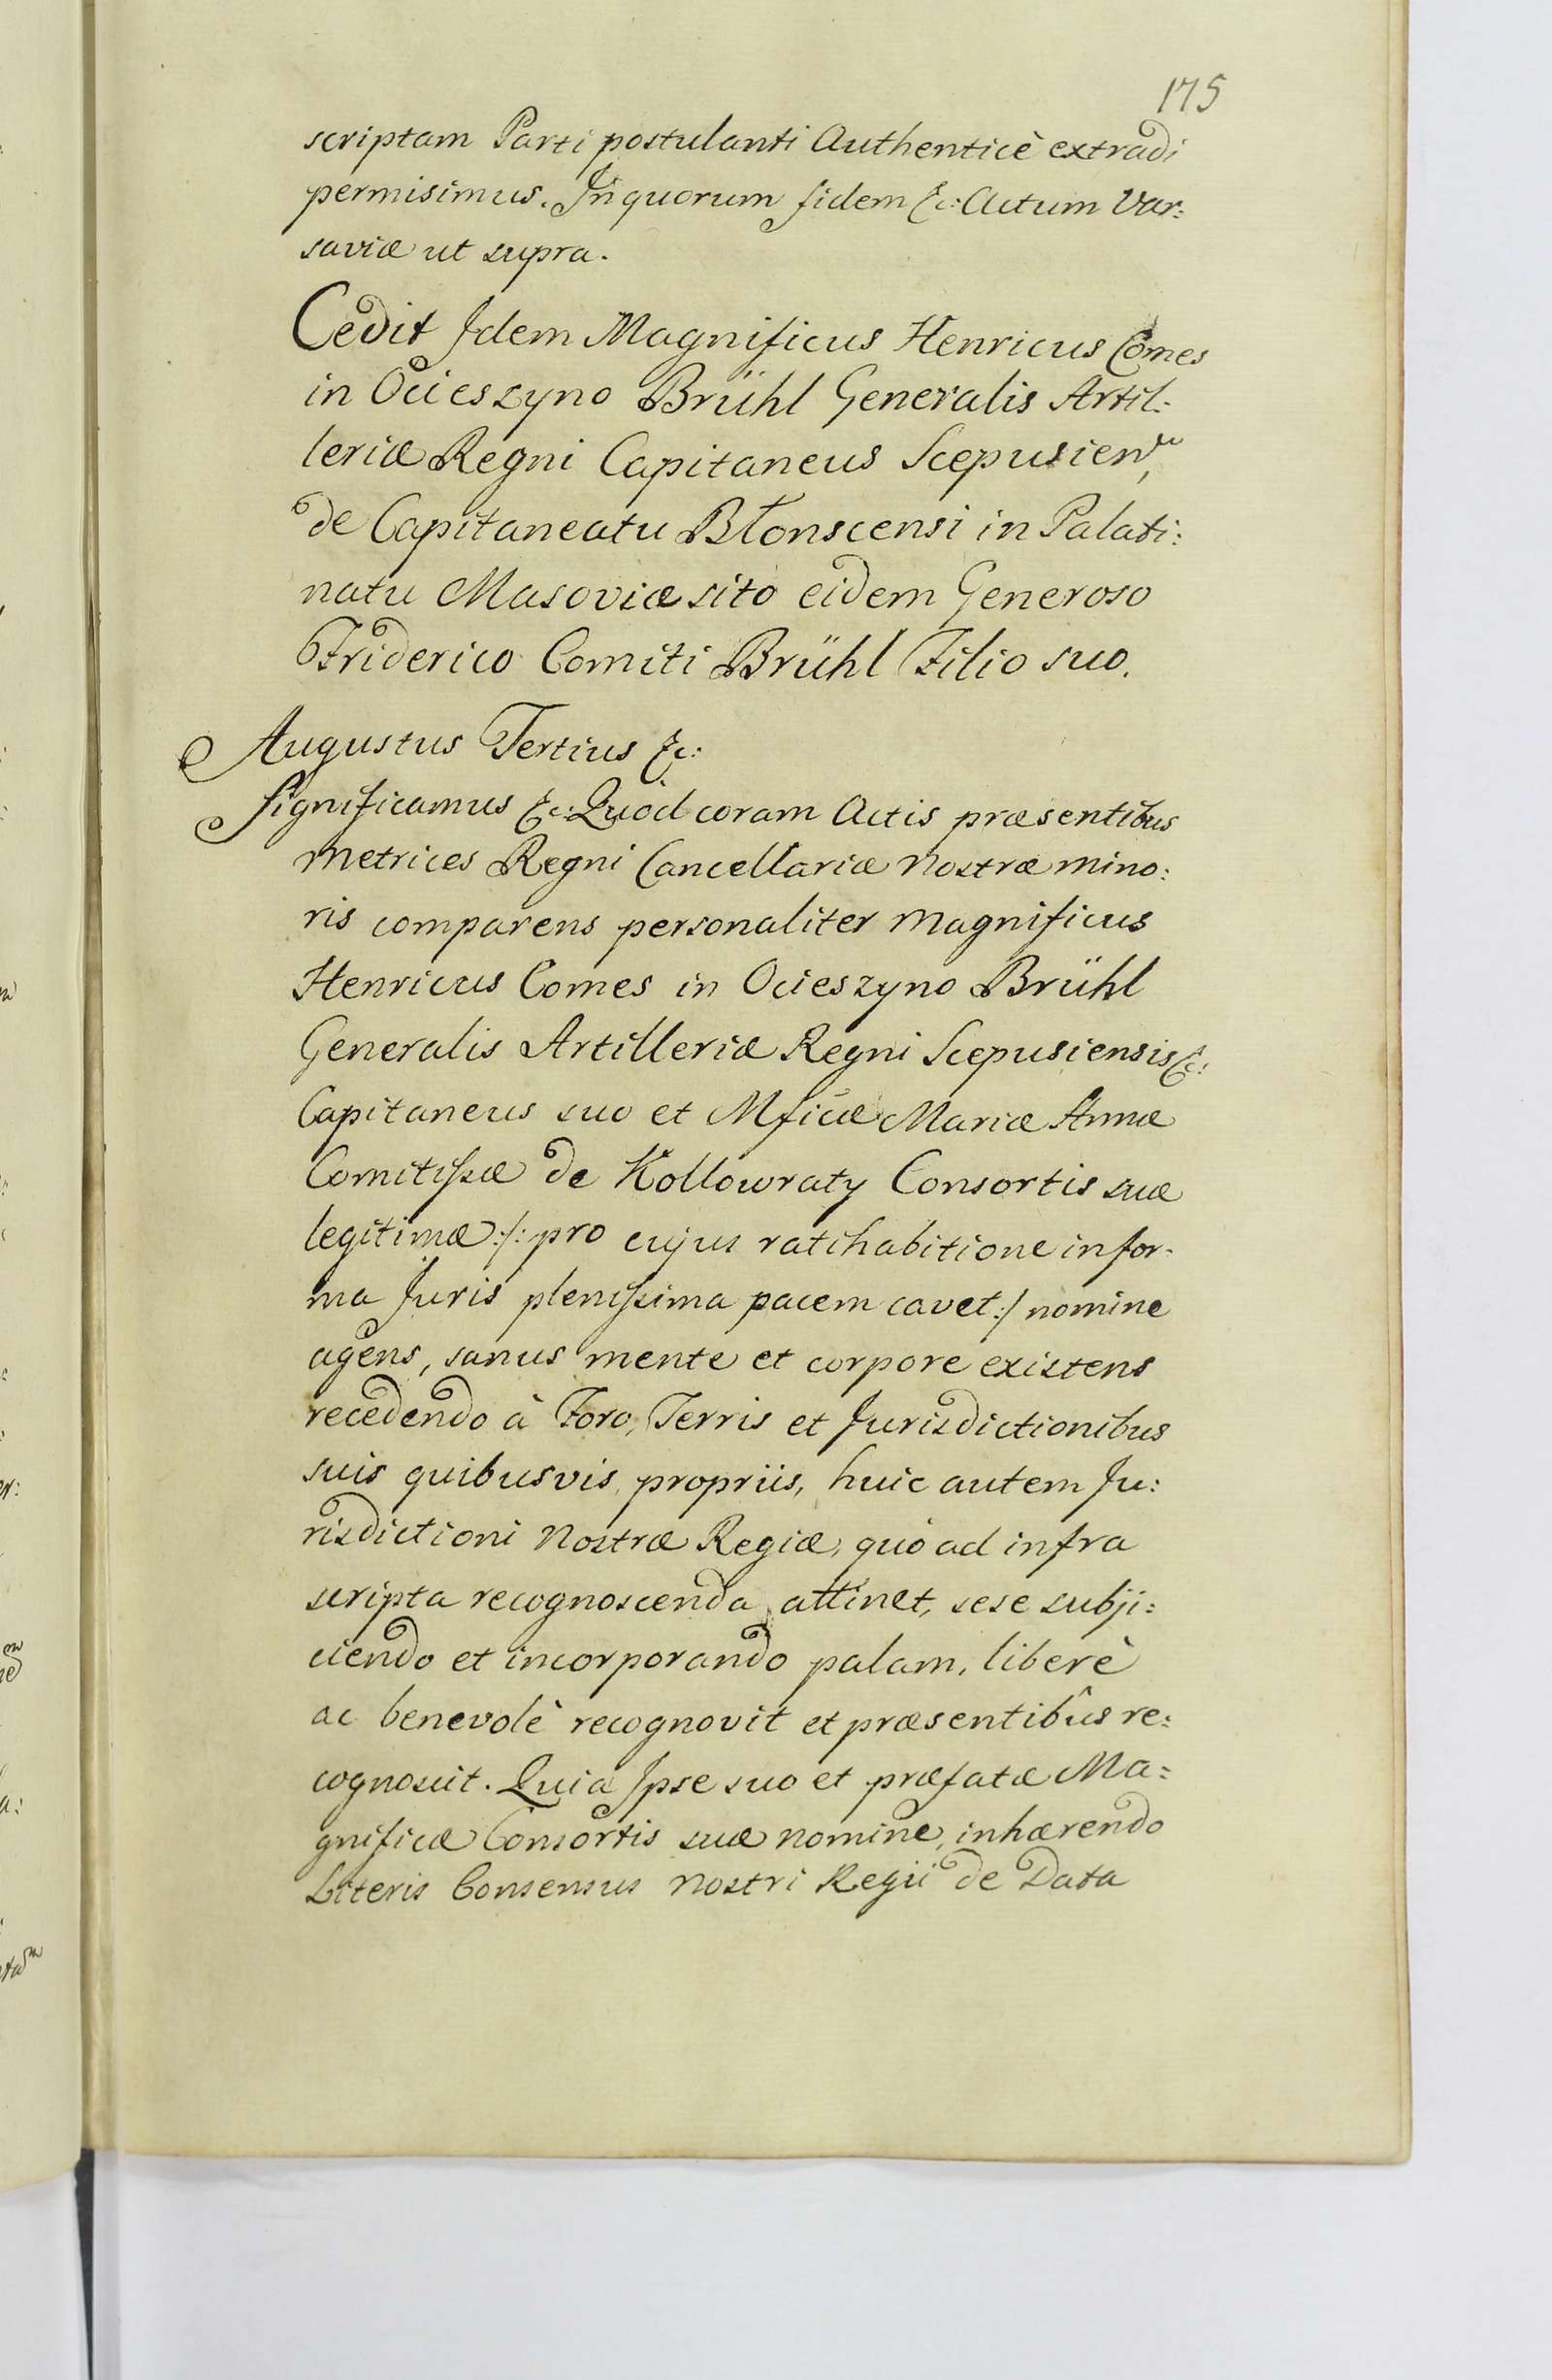 175
scriptam Parti postulanti Authenticè extradi
permisimus. In quorum fidem &c: Actum Var:
saviæ ut supra.
Cedit Idem Magnificus Henricus Comes
in Ocieszyno Brühl Generalis Artil:
leriæ Regni Capitaneus Scepusien,
de Capitaneatu Błonscensi in Palati:
natu Masoviæ sito eidem Generoso
Friderico Comiti Brühl Filio suo.
Augustus Tertius &c:
Significamus &c: Quòd coram Actis præsentibus
Metrices Regni Cancellariæ Nostræ mino:
ris comparens personaliter Magnificus
Henricus Comes in Ocieszyno Brühl
Generalis Artilleriæ Regni Scepusiensis &c:
Capitaneus suo et Mficæ Mariæ Annæ
Comitissæ de Kollowraty Consortis suæ
legitimæ :/: pro cujus ratihabitione in for-
ma Juris plenissima pacem cavet :/ nomine
agens, sanus mente et corpore existens
recedendo à Foro, Terris et Jurisdictionibus
suis quibusvis propriis, huic autem Ju:
risdictioni Nostræ Regiæ, quò ad infra
scripta recognoscenda attinet, sese subji:
ciendo et incorporando palam, liberè
ac benevolè recognovit et præsentibûs re:
cognoscit. Quia Ipse suo et præfatæ Ma:
gnificæ Consortis suæ nomine, inhærendo
Literis Consensus Nostri Regii de Data